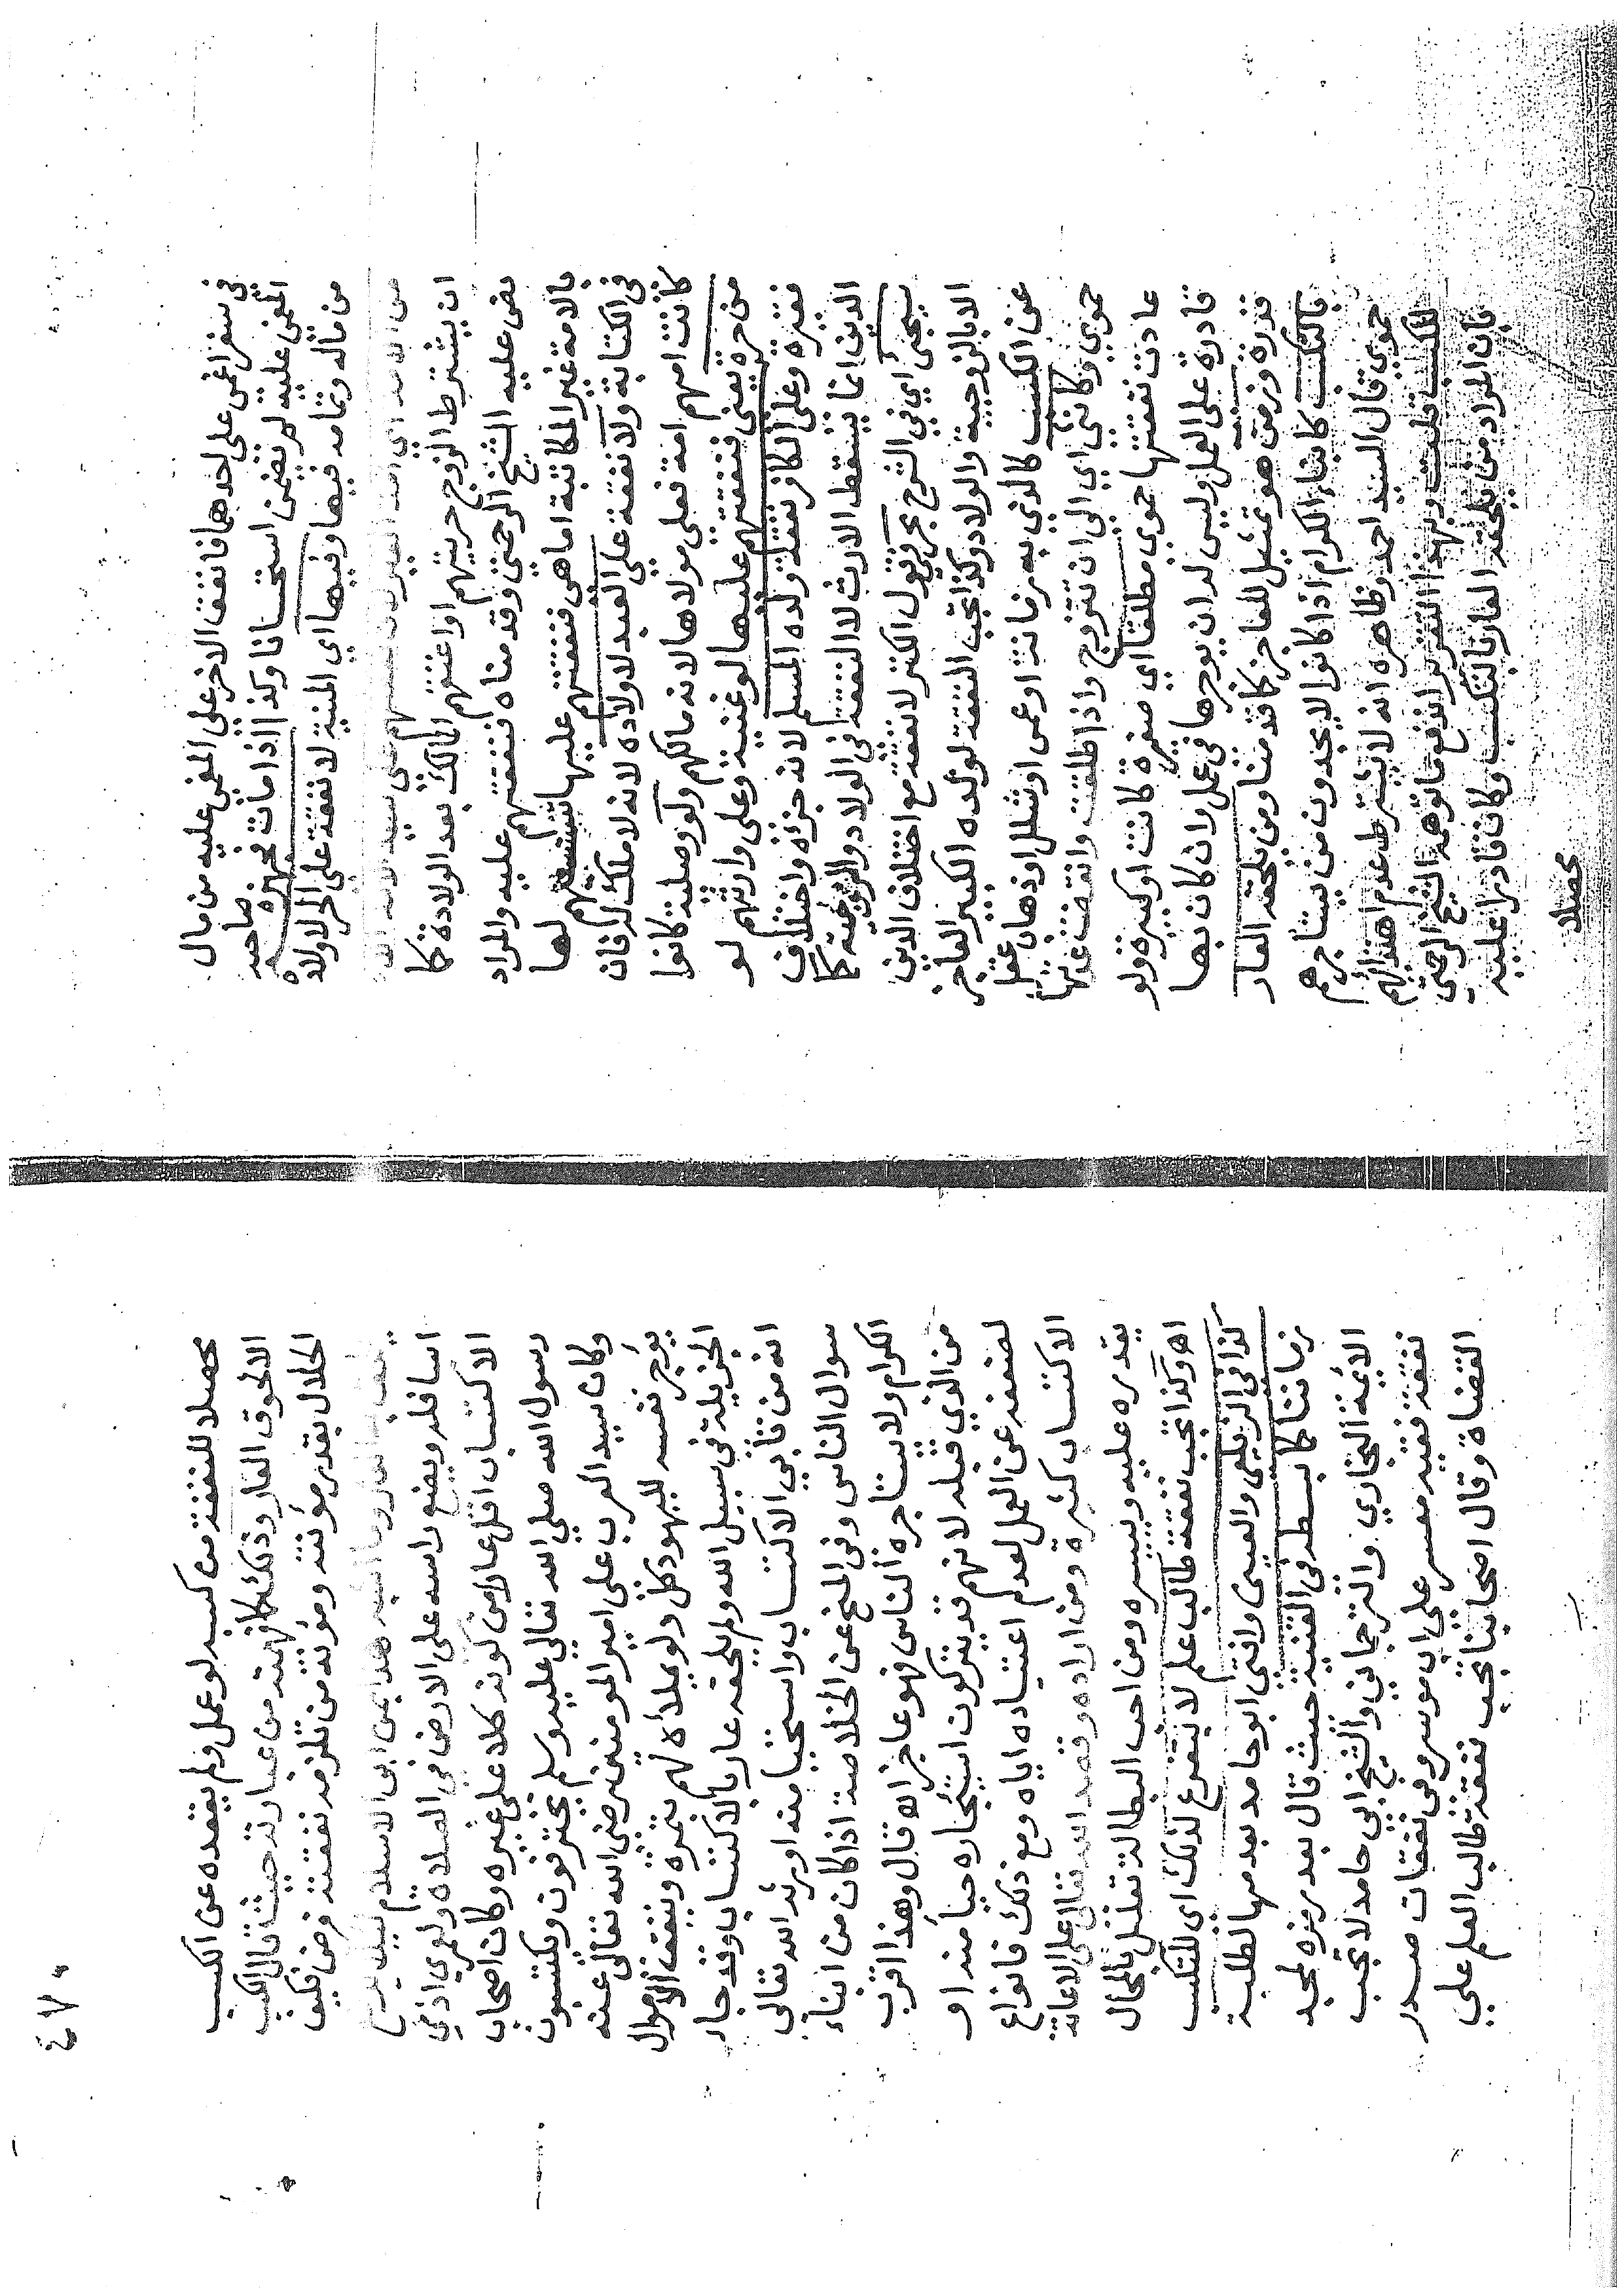 في سفر اغمي على احدهما فانفق الاخر على المغمى عليه من مال
المغمى عليه لم يضمن استحسانا وكذا اذا مات فجهزه صاحبه
من ماله وتمامه فيها وفيها اي المنية لا نفقة على الحر لاولاده
من الامة اي امة الغير
ان يشترط الزوج حريتهم او اعتقهم المالك بعد الولادة كما
نص عليه الشيخ الرحمتي وقدمناه فنفقتهم عليه والمراد
بالامة غير المكاتبة اما هي فنفقتهم عليها لتبعيتهم لها
في الكتابة ولا نفقة على العبد لاولاده لانه لا ملك له فان
كانت امهم امة فعلى مولاها لانه مالكهم ولو وصلية كانوا
من حرة تعني فنفقتهم عليها لو غنية وعلى وارثهم لو
فقيرة وعلى الكافر نفقة ولده المسلم لانه جزؤه واختلاف
الدين انما يسقط الارث لا النفقة في الولاد والزوجية كما
سيجئ اي في الشرح قول الكنز لا نفقة مع اختلاف الدين
الا بالزوجية والولاد وكذا تجب النفقة لولده الكبير العاجز
عن الكسب كالذي به زمانة او عمى او شلل او ذهاب عقل
حموي وكانثي اي الى ان تتزوج واذا طلقت وانقضت عدتها
عادت نفقتها حموي مطلقا اي صغيرة كانت او كبيرة ولو
قادرة على العمل وليس له ان يوجرها في عمل وان كان بها
قدرة وزمن هو تمثيل للعاجز كما قدمنا ومن يلحقه العار
بالتكسب كابناء الكرام اذا كانوا لا يجدون من يستاجرهم
حموي قال السيد احمد وظاهره انه لا يشترط عدم اهتدائهم
للكسب قلت وبهذا التقرير اندفع ما توهمه الشيخ الرحمتي
بان المراد من يلحقه العار بالتكسب وكان قادرا عليه
محصلا
٤٧٠
محصلا للنفقة من كسبه لو عمل ولم يقعده عن الكسب
الا لحوق العار وذلك كما فهمته من عبارته حيث قال الكسب
الحلال بقدر مؤنته ومؤنة من تلزمه نفقته فرض فكيف
اسافله ويضع راسه على الارض في الصلاة ولعمري اذي
الاكتساب اقل عارا من كونه كلا على غيره وكان اصحاب
رسول الله صلى الله تعالى عليه وسلم يحترفون ويكتسبون
وكان سيد العرب على امير المومنين رضي الله تعالى عنه
يؤجر نفسه لليهود كل دلو يملاه لهم بتمرة وينفق الاموال
الجزيلة في سبيل الله ولم يلحقه عار بالاكتساب وقد جاء
انه من تابي الاكتساب واستحيا منه او يريد الله تعالى
سوال الناس وفي المنح عن الخلاصة اذا كان من ابناء
الكرام ولا يستاجره الناس فهو عاجز اه قال وهذا اقرب
من الذي قبله لانهم قد يتركون استيجاره حيا منه او
لضعفه عن العمل لعدم اعتياده اياه ومع ذلك فانواع
الاكتساب كثيرة ومن اراده وقصد الله تعالى على الاعانة
يقدره عليه وييسره ومن احب البطالة تعلل بالمحال
اه وكذا تجب نفقة طالب علم لا يتفرغ لذلك اي للتكسب
كذا في الزيلعي والعيني وافتى ابو حامد بعدمها لطلبة
زماننا كما بسطه في القنية حيث قال بعد رمزه لمجد
الائمة البخاري والترجماني والشيخ ابي حامد لا تجب
نفقة فقيه معسر على اب موسر وفي نفقات صدر
القضاة وقال اصحابنا تجب نفقة طالب العلم على